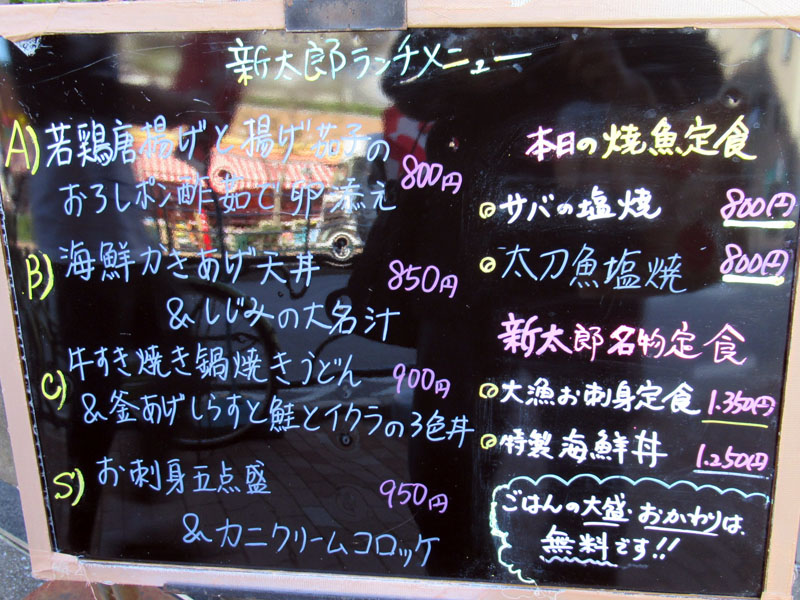 新太郎ランチメニュー
A) 若鶏唐揚げと揚げ茄子の
おろしポン酢茹で卵添え 800円
B) 海鮮かきあげ天丼 850円
&しじみの大名汁
C) 牛すき焼き鍋焼きうどん 900円
&釜あげしらすと鮭とイクラの3色丼
S) お刺身五点盛 950円
&カニクリームコロッケ
本日の焼魚定食
サバの塩焼 800円
太刀魚塩焼 800円
新太郎名物定食
大漁お刺身定食 1.350円
特製海鮮丼 1.250円
ごはんの大盛・おかわりは、
無料です!!